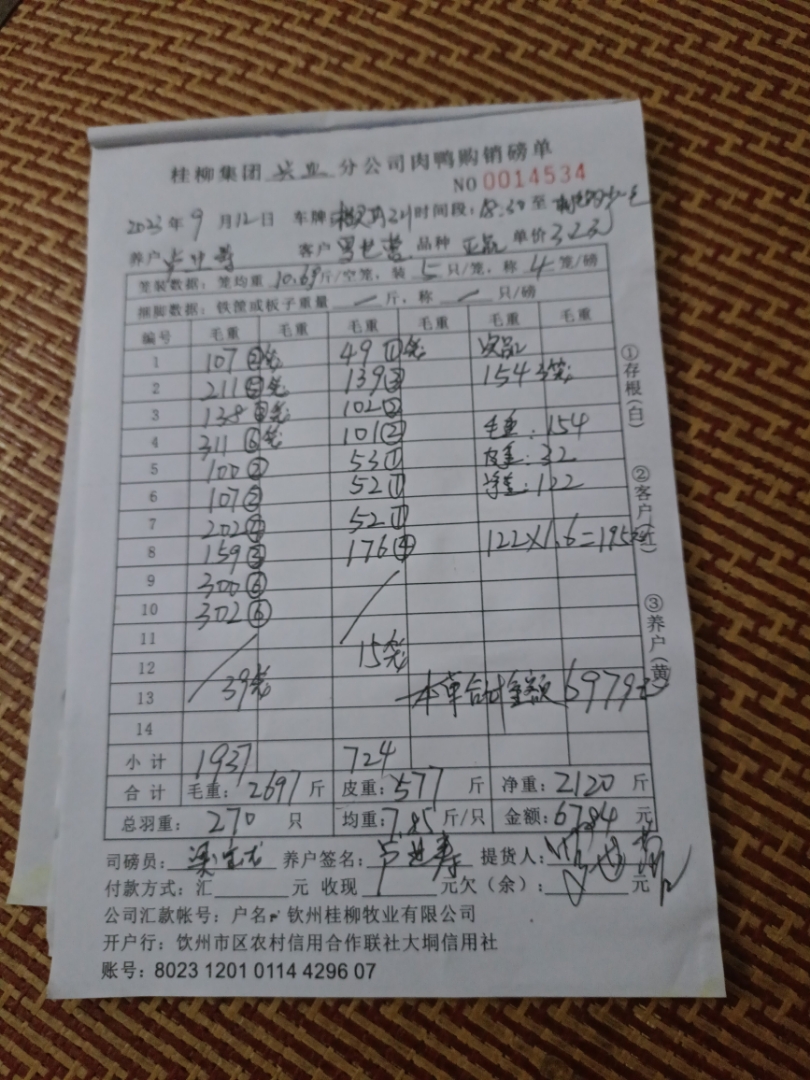 桂柳集团 兴业 分公司肉鸭购销磅单
NO 0014534
2023年9月12日 车牌 时间段: 18:30 至
养户 客户 罗世营 品种 正品 单价 3.2元
笼装数据: 笼均重 10.69斤/空笼, 装 5 只/笼, 称 4 笼/磅
捆脚数据: 铁筐或板子重量 斤, 称 只/磅
编号 毛重 毛重 毛重 毛重 毛重 毛重
1 107②笼 49①笼 次品
2 211④笼 139③ 154 3笼
3 138③笼 102②
4 311⑥笼 101② 毛重: 154
5 100② 53① 皮重: 32
6 107② 52① 净重: 122
7 202④ 52①
8 159③ 176④ 122×1.6=195元
9 300⑥
10 302⑥
11
12 15笼
13 39笼 本单合计金额 6979元
14
小计 1937 724
合计 毛重: 2697 斤 皮重: 577 斤 净重: 2120 斤
总羽重: 270 只 均重: 7.85 斤/只 金额: 6784 元
司磅员: 养户签名: 提货人:
付款方式: 汇 元 收现 元欠(余): 元
公司汇款帐号: 户名: 钦州桂柳牧业有限公司
开户行: 饮州市区农村信用合作联社大垌信用社
账号: 8023 1201 0114 4296 07
①存根(白)
②客户(红)
③养户(黄)